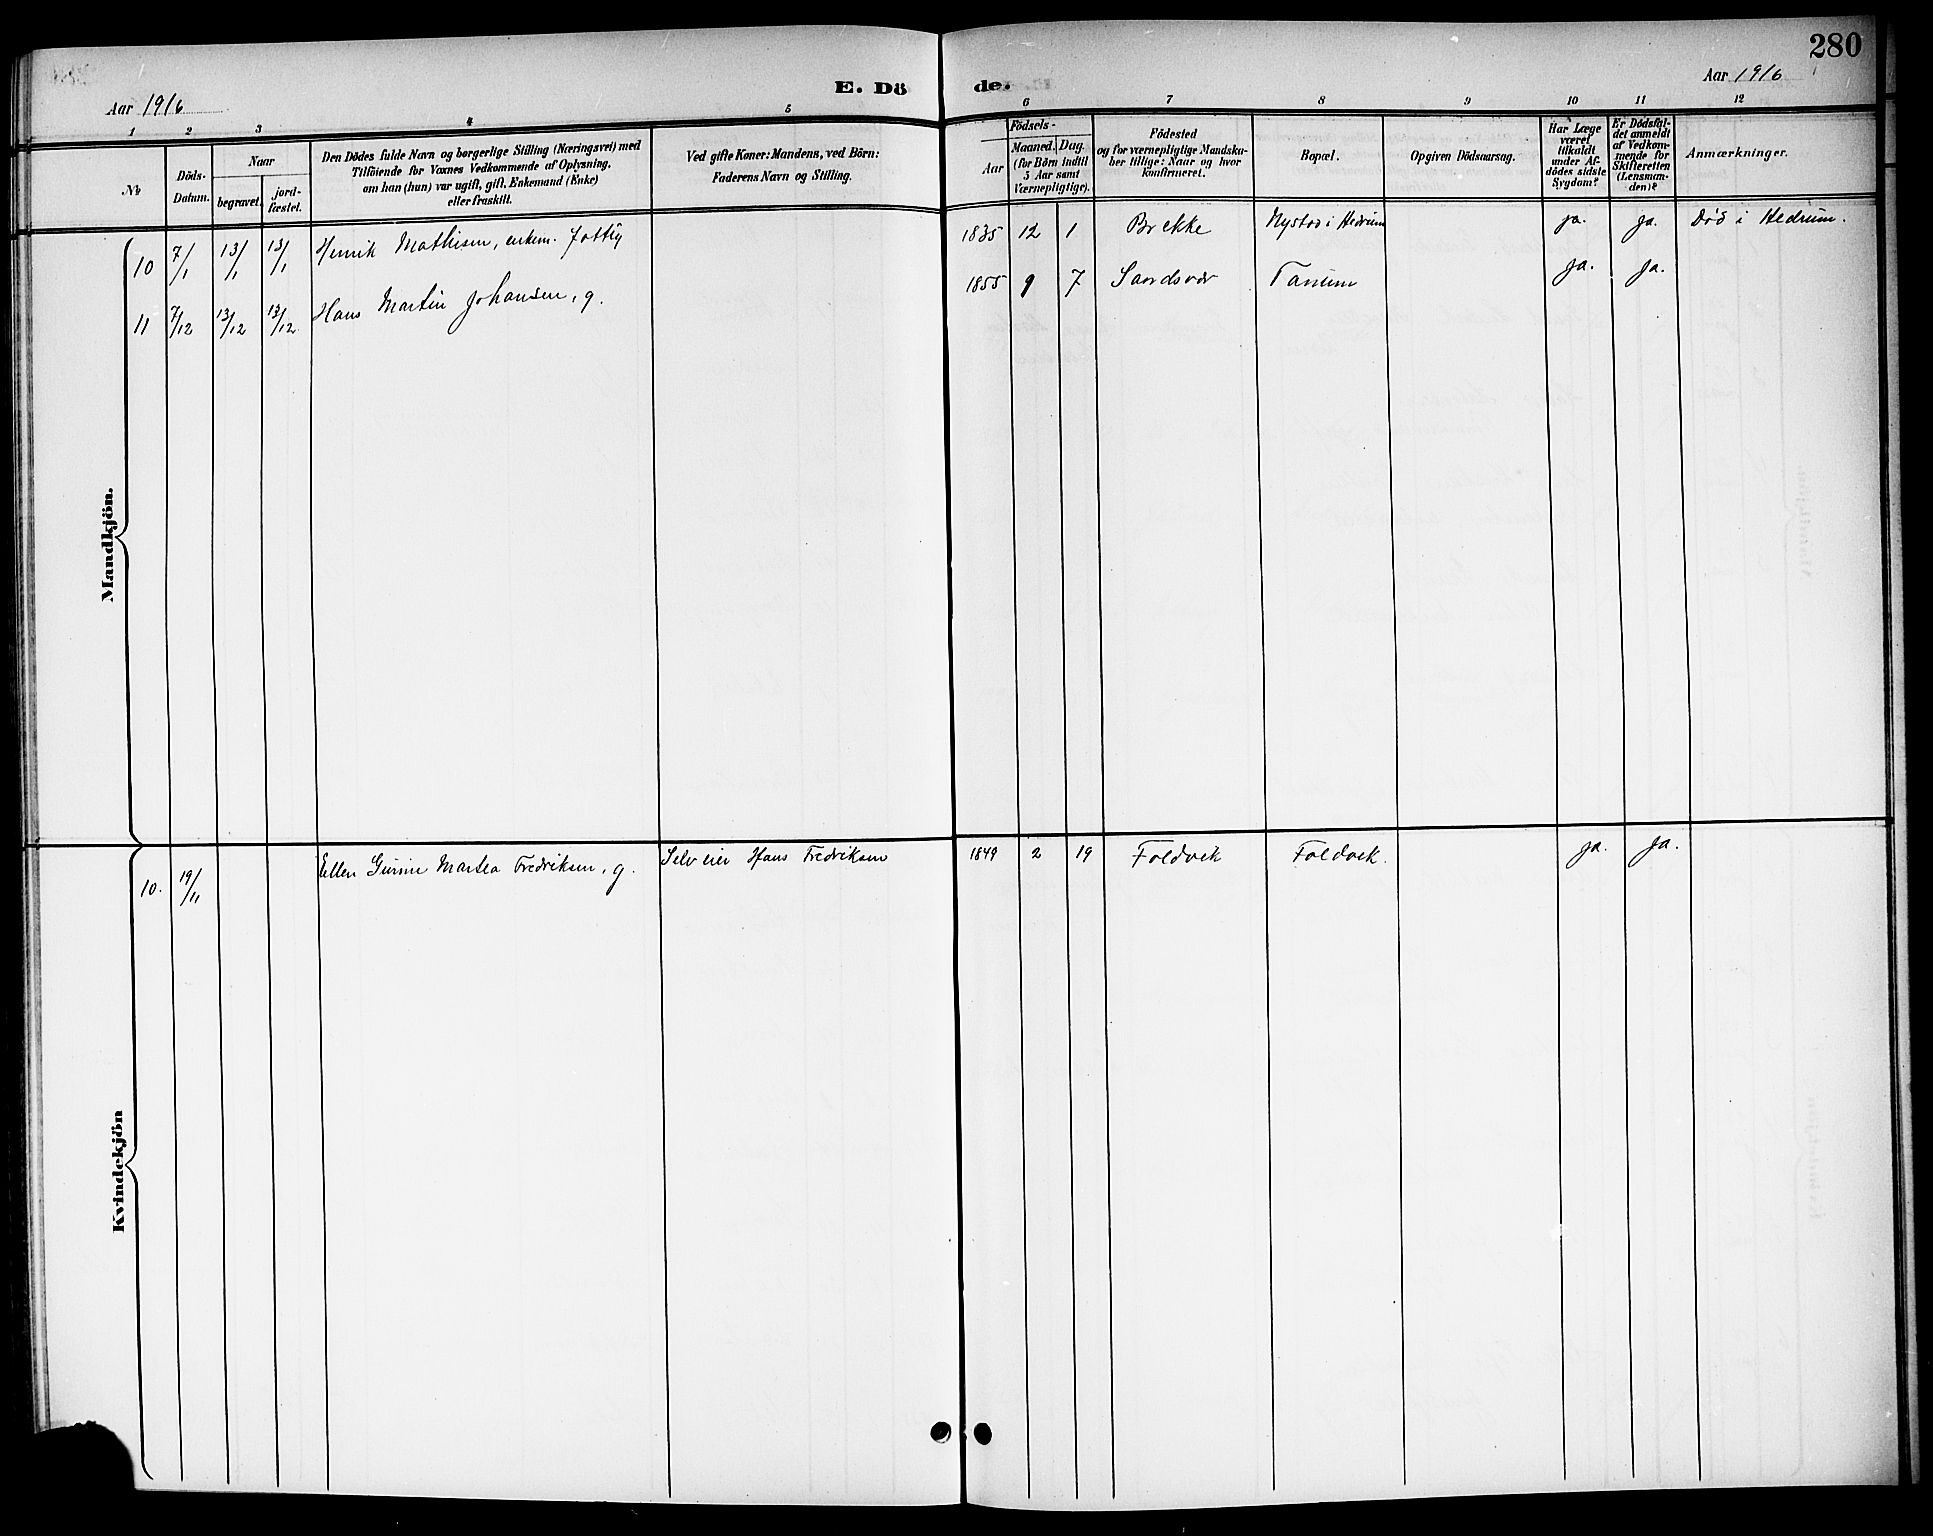 280
E. Döde.
Aar 1916
Aar 1916
1 2 3 4 5 6 7 8 9 10 11 12
No
Döds-Datum.
Naar
begravet.
jord-fæstet.
Den Dödes fulde Navn og borgerlige Stilling (Næringsvei) med
Tilföiende for Voxnes Vedkommende af Oplysning,
om han (hun) var ugift, gift, Enkemand (Enke)
eller fraskilt.
Ved gifte Koner: Mandens, ved Börn:
Faderens Navn og Stilling.
Födsels-
Aar
Maaned. Dag.
(for Börn indtil
5 Aar samt
Værnepligtige).
Födested
og for værnepligtige Mandska-
ber tillige: Naar og hvor
konfirmeret.
Bopæl.
Opgiven Dödsaarsag.
Har Læge
været
tilkaldt
under Af-
dödes sidste
Sygdom?
Er Dödsfal-
det anmeldt
af Vedkom-
mende for
Skifteretten
(Lensman-
den)?
Anmærkninger.
Mandkjön.
10 7/1 13/1 13/1 Henrik Mathisen, enkem. fattig 1835 12 1 Brekke Nystad i Hedrum ja. ja. Död i Hedrum.
11 7/12 13/12 13/12 Hans Martin Johansen, g. 1855 9 7 Sandsvær Tanum ja. ja.
Kvindekjön
10. 19/11 Ellen Gurine Martea Fredriksen, g. Selveier Hans Fredriksen 1849 2 19 Foldvik Foldvik. ja. ja.